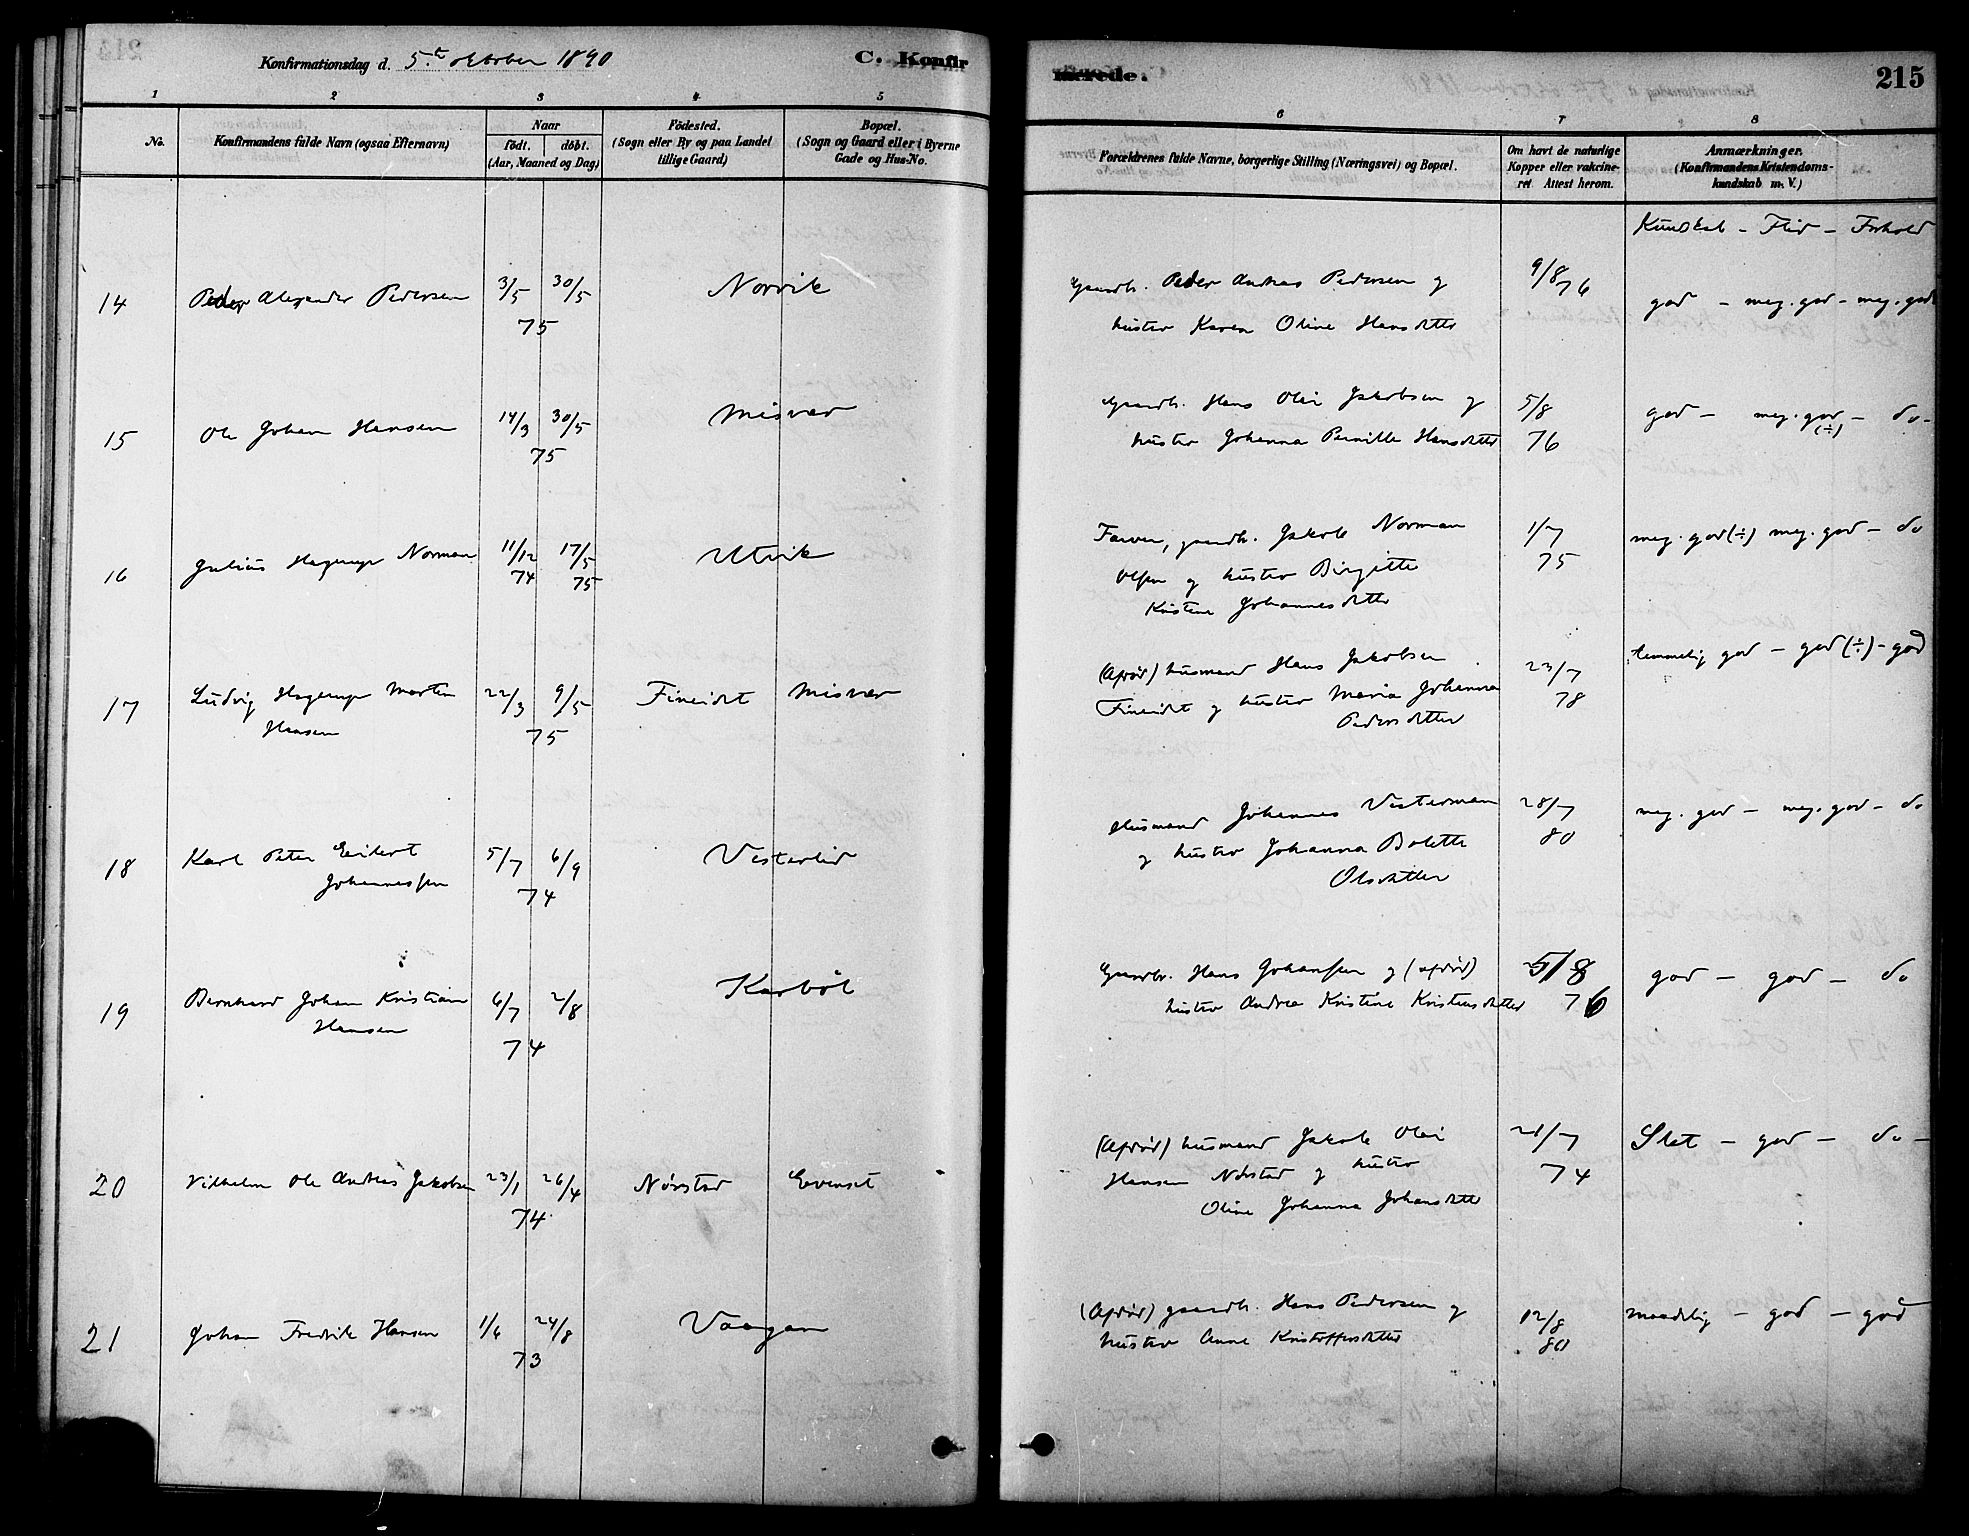 Konfirmationsdag d. 5.te oktober 1890 C. Konfirmerede. 215
1 2 3 4 5 6 7 8
No. Konfirmandens fulde Navn (ogsaa Efternavn) Naar födt. döbt. (Aar, Maaned og Dag) Födested. (Sogn eller By og paa Landet tillige Gaard) Bopæl. (Sogn og Gaard eller i Byerne Gade og Hus-No.
Forældrenes fulde Navne, borgerlige Stilling (Næringsvei) og Bopæl. Om havt de naturlige Kopper eller vakcineret Attest herom. Anmærkninger. (Konfirmandens Kristendomskundskab m. V.)
Kundskab - Flid - Forhold
14 Peder Alexander Pedersen 3/5 30/5 75 Norvik
Gaardb. Peder Andreas Pedersen og
hustro Karen Oline Hansdatter
9/8 76 god - meg. god - meg. godt
15 Ole Johan Hansen 14/3 30/5 75 Misvær
Gaardb. Hans Olai Jakobsen og
hustro Johanna Pernille Hansdatter
5/8 76 god - meg. god (÷) - do -
16 Julius Hagerup Norman 11/12 74 17/5 75 Utvik
Farver, gaardb. Jakob Norman
Olsen og hustro Birgitte
Kristine Johannesdatter
1/7 75 meg. god (÷) meg. god - do
17 Ludvig Hagerup Martin
Hansen 22/3 9/5 75 Fineidet Misvær
(Afdød) husmand Hans Jakobsen
Fineidet og hustro Maria Johanna
Pedersdatter
23/7 78 temmelig god - god (÷) - god
18 Karl Peter Eilert
Johannessen 5/7 6/9 74 Vesterlid
Husmand Johannes Vesterman
og hustro Johanna Bolette
Olsdatter
28/7 80 meg. god - meg. god - do
19 Bernhard Johan Kristian
Hansen 6/7 2/8 74 Karbøl
Gaardbr. Hans Johansen og (afdød)
hustro Andrea Kristine Kristensdatter
5/8 76 god - god - do
20 Vilhelm Ole Andreas Jakobsen 23/1 26/4 74 Nørstad Evenset
(Afdød) husmand Jakob Olai
Hansen Nørstad og hustro
Oline Johanna Johansdatter
21/7 74 Slet - god - do -
21 Johan Fredrik Hansen 1/6 24/8 73 Vaagan
(Afdød) gaardb. Hans Pedersen og
hustro Anne Kristoffersdatter
12/8 80 maadelig - god - god